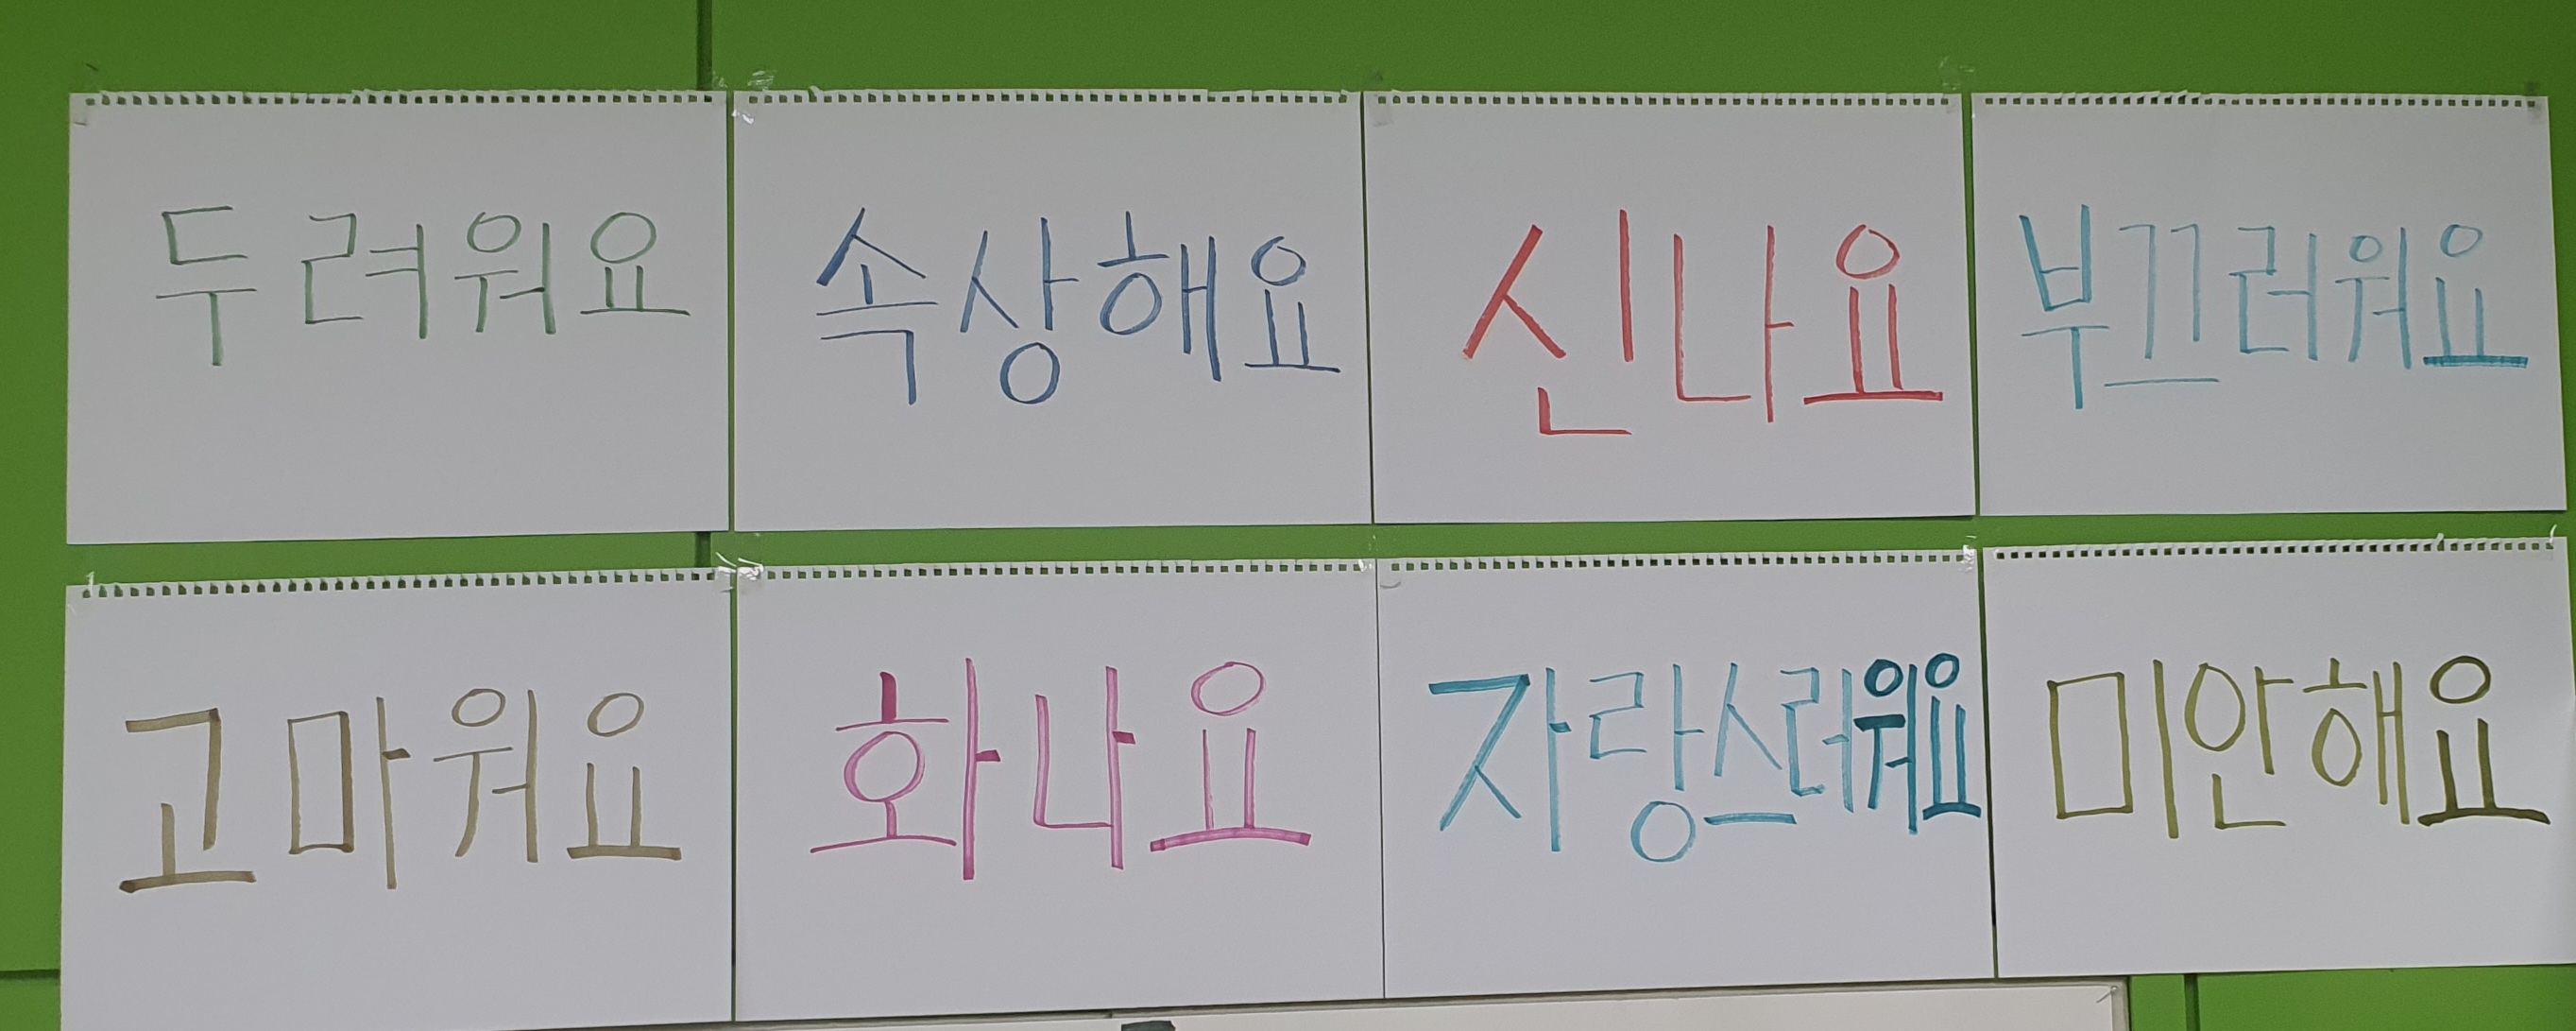 두려워요
속상해요
신나요
부끄러워요
고마워요
화나요
자랑스러워요
미안해요